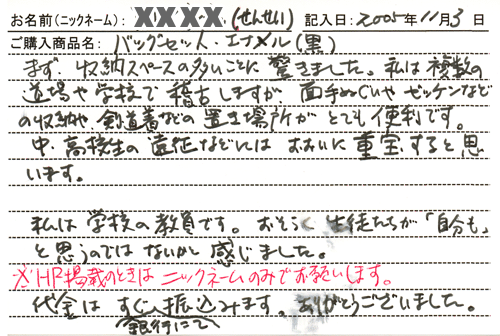 お名前(ニックネーム): XXXX (せんせい) 記入日: 2005年11月3日
ご購入商品名: バッグセット・エナメル(黒)
まず、収納スペースの多いことに驚きました。私は複数の
道場や学校で稽古しますが 面手ぬぐいやゼッケンなど
の収納や、剣道着などの置き場所が とても便利です。
中、高校生の遠征などには おおいに重宝すると思
います。
私は学校の教員です。おそらく生徒たちが「自分も」
と思うのではないかと感じました。
※HP掲載のときは ニックネームのみでお願いします。
代金は すぐ振込みます。ありがとうございました。
銀行にて